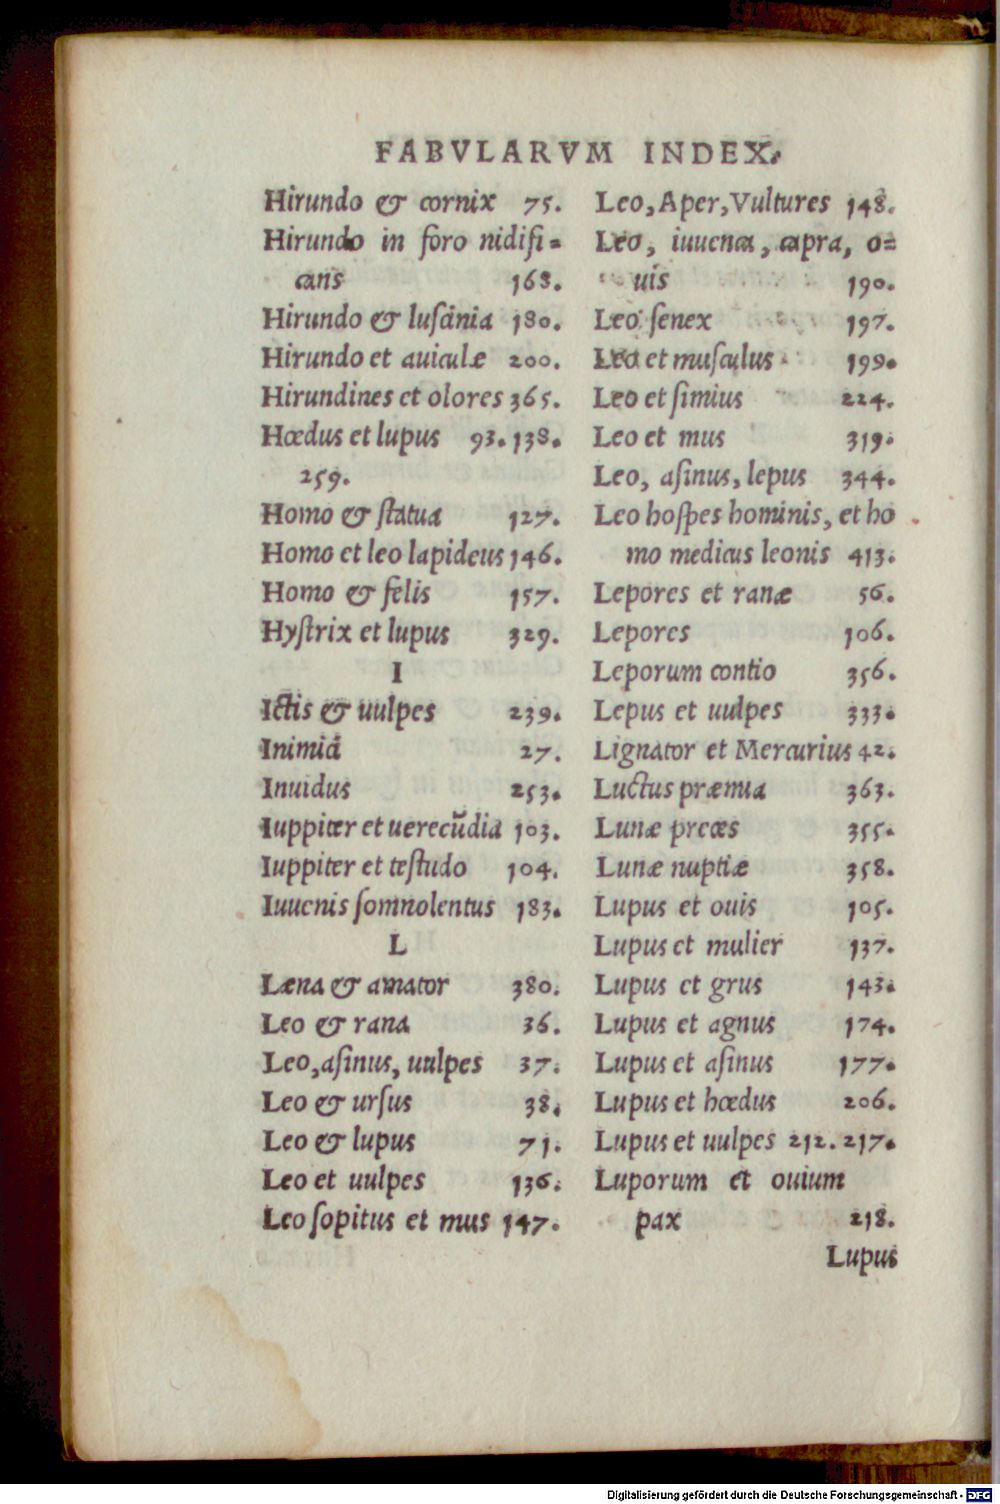 FABVLARVM INDEX.
Hirundo & cornix 75.
Hirundo in foro nidifi=
cans 168.
Hirundo & luſcinia 180.
Hirundo et auiculæ 200.
Hirundines et olores 365.
Hœdus et lupus 93. 138.
259.
Homo & ſtatua 127.
Homo et leo lapideus 146.
Homo & felis 157.
Hyſtrix et lupus 329.
I
Ictis & uulpes 239.
Inimici 27.
Inuidus 253.
Iuppiter et uerecūdia 103.
Iuppiter et teſtudo 104.
Iuuenis ſomnolentus 183.
L
Læna & amator 380.
Leo & rana 36.
Leo, aſinus, uulpes 37.
Leo & urſus 38.
Leo & lupus 71.
Leo et uulpes 136.
Leo ſopitus et mus 147.
Leo, Aper, Vultures 148.
Leo, iuuenca, capra, o=
uis 190.
Leo ſenex 197.
Leo et muſculus 199.
Leo et ſimius 224.
Leo et mus 319.
Leo, aſinus, lepus 344.
Leo hoſpes hominis, et ho
mo medicus leonis 413.
Lepores et ranæ 56.
Lepores 106.
Leporum contio 356.
Lepus et uulpes 333.
Lignator et Mercurius 42.
Luctus præmia 363.
Lunæ preces 355.
Lunæ nuptiæ 358.
Lupus et ouis 105.
Lupus et mulier 137.
Lupus et grus 143.
Lupus et agnus 174.
Lupus et aſinus 177.
Lupus et hœdus 206.
Lupus et uulpes 212. 217.
Luporum et ouium
pax 218.
Lupus
Digitalisierung gefördert durch die Deutsche Forschungsgemeinschaft - DFG